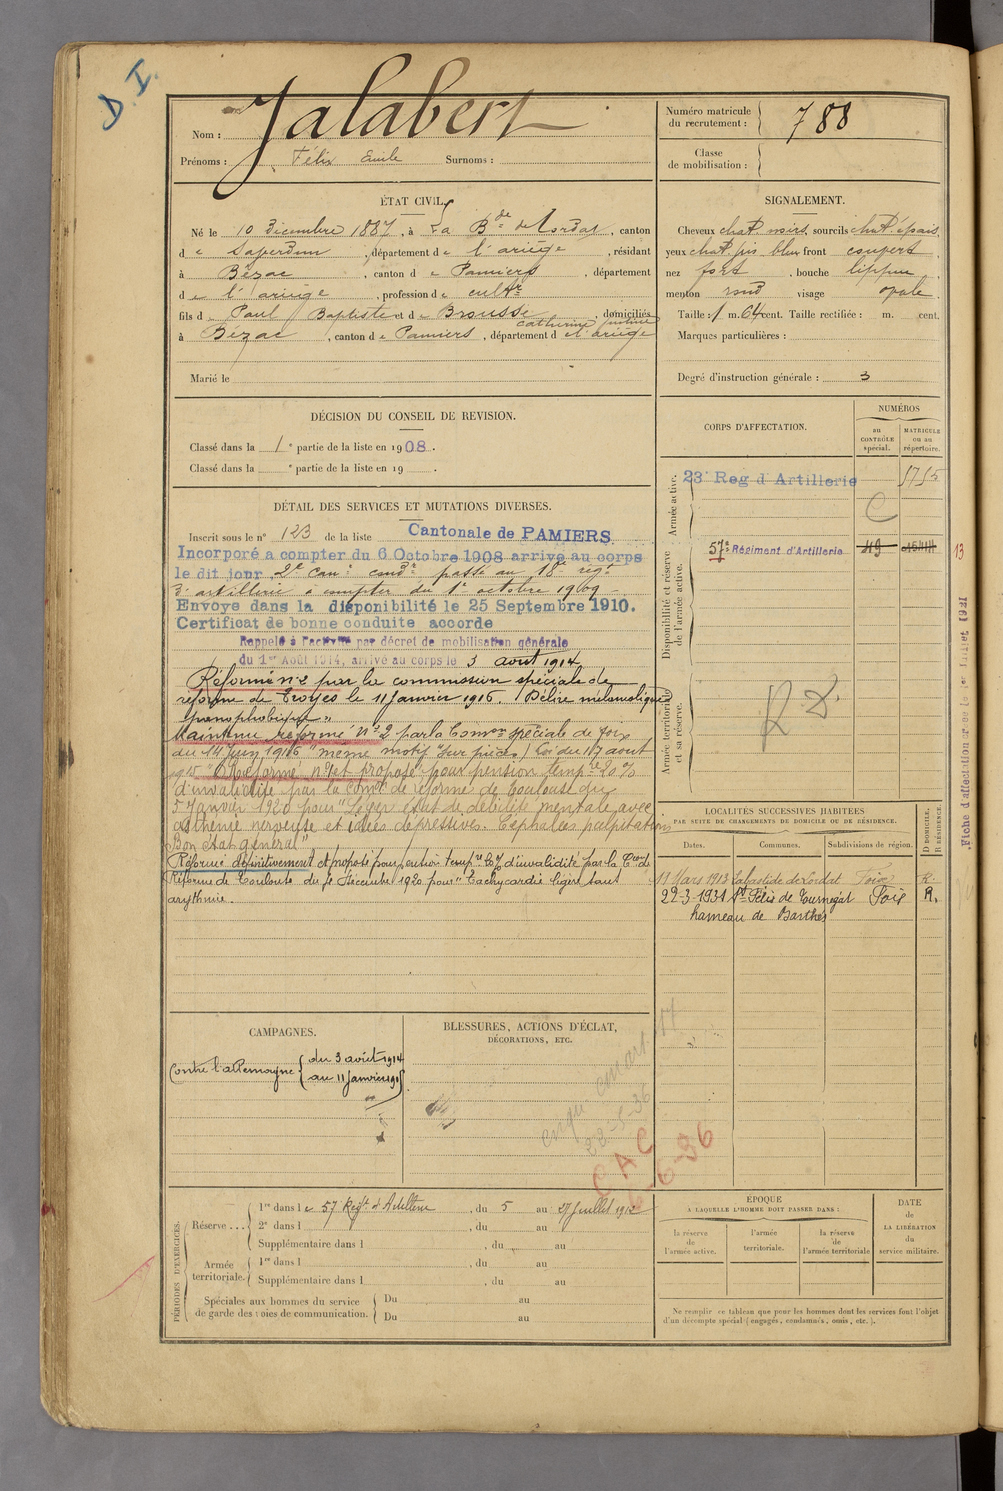 D. I.
Nom : Jalabert
Prénoms : Félix Emile Surnoms :
Numéro matricule du recrutement : 788
Classe de mobilisation :
ÉTAT CIVIL.
Né le 10 décembre 1887, à La Bde de Lordat, canton
de Saverdun, département de l'ariège, résidant
à Bézac, canton de Pamiers, département
de l'ariège, profession de cultr
fils de Paul Baptiste et de Brousse Catherine Justine, domiciliés
à Bézac, canton de Pamiers, département d el'ariège
Marié le
SIGNALEMENT.
Cheveux chat. noirs, sourcils chat épais,
yeux chat. gis bleu front couvert,
nez fort, bouche lippue,
menton rond visage ovale.
Taille : 1 m. 64 cent. Taille rectifiée : m. cent.
Marques particulières :
Degré d'instruction générale : 3
DÉCISION DU CONSEIL DE REVISION.
Classé dans la 1e partie de la liste en 1908.
Classé dans la e partie de la liste en 19 .
DÉTAIL DES SERVICES ET MUTATIONS DIVERSES.
Inscrit sous le n° 123 de la liste Cantonale de PAMIERS
Incorporé a compter du 6 Octobre 1908 arrivé au corps
le dit jour 2e canr condr passé au 18e régt
d'artillerie a compter du 1er octobre 1909
Envoyé dans la disponibilité le 25 Septembre 1910.
Certificat de bonne conduite accorde
Rappelé à l'activité par décret de mobilisation générale
du 1er Août 1914, arrivé au corps le 3 août 1914
Réformé n°2 par la commission spéciale de
réforme de Troyes le 11 Janvier 1916. "Délire mélancolique
panophobique"
Maintenu réformé n°2 par la Comon spéciale de Foix
du 14 juin 1916 "même motif" sur pièces (Loi du 17 aout
1915 Réformé n°1 et proposé pour pension tempre 20%
d'invalidité par la comon de réforme de Toulouse du
5 Janvier 1920 pour "Léger état de débilité mentale avec
asthénie nerveuse et idées dépressives. Céphalées palpitations
Bon état général"
Réformé définitivement et proposé pour pension tempre 20% d'invalidité par la Con de
Réforme de Toulouse du 4 Décembre 1920 pour "Tachycardie légère sans
arythmie.
CORPS D'AFFECTATION.
NUMÉROS
au CONTRÔLE spécial.
MATRICULE ou au répertoire.
Armée active.
23e Reg d Artillerie 5755
C
Disponibilité et réserve de l'armée active.
57e Régiment d'Artillerie 49
Armée territoriale et sa réserve.
R. 2.
13
LOCALITÉS SUCCESSIVES HABITÉES
PAR SUITE DE CHANGEMENTS DE DOMICILE OU DE RÉSIDENCE.
D. DOMICILE. R. RÉSIDENCE.
Dates. Communes. Subdivisions de région.
11 Mars 1913 Labastide de Lordat Foix R.
22-3-1931 St Félix de Tournegat Foix R.
hameau de Barthés
CAMPAGNES.
Contre l'allemagne { du 3 août 1914
au 11 Janvier 1916
BLESSURES, ACTIONS D'ÉCLAT,
DÉCORATIONS, ETC.
CAC
6-6-36
PÉRIODES D'EXERCICES.
Réserve ... 1re dans le 57 Régt d'Artillerie, du 5 au 27 juillet 1912
2e dans l , du au
Supplémentaire dans l , du au
Armée territoriale. 1re dans l , du au
Supplémentaire dans l , du au
Spéciales aux hommes du service de garde des voies de communication. Du au
Du au
ÉPOQUE
À LAQUELLE L'HOMME DOIT PASSER DANS :
la réserve de l'armée active.
l'armée territoriale.
la réserve de l'armée territoriale
DATE de LA LIBÉRATION du service militaire.
Ne remplir ce tableau que pour les hommes dont les services font l'objet
d'un décompte spécial (engagés, condamnés, omis, etc.).